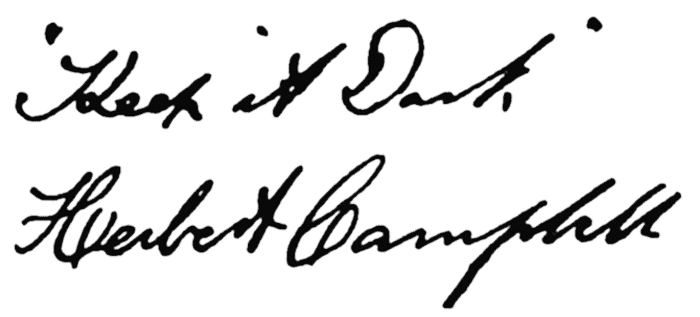 "Keep it Dark"
Herbert Campbell